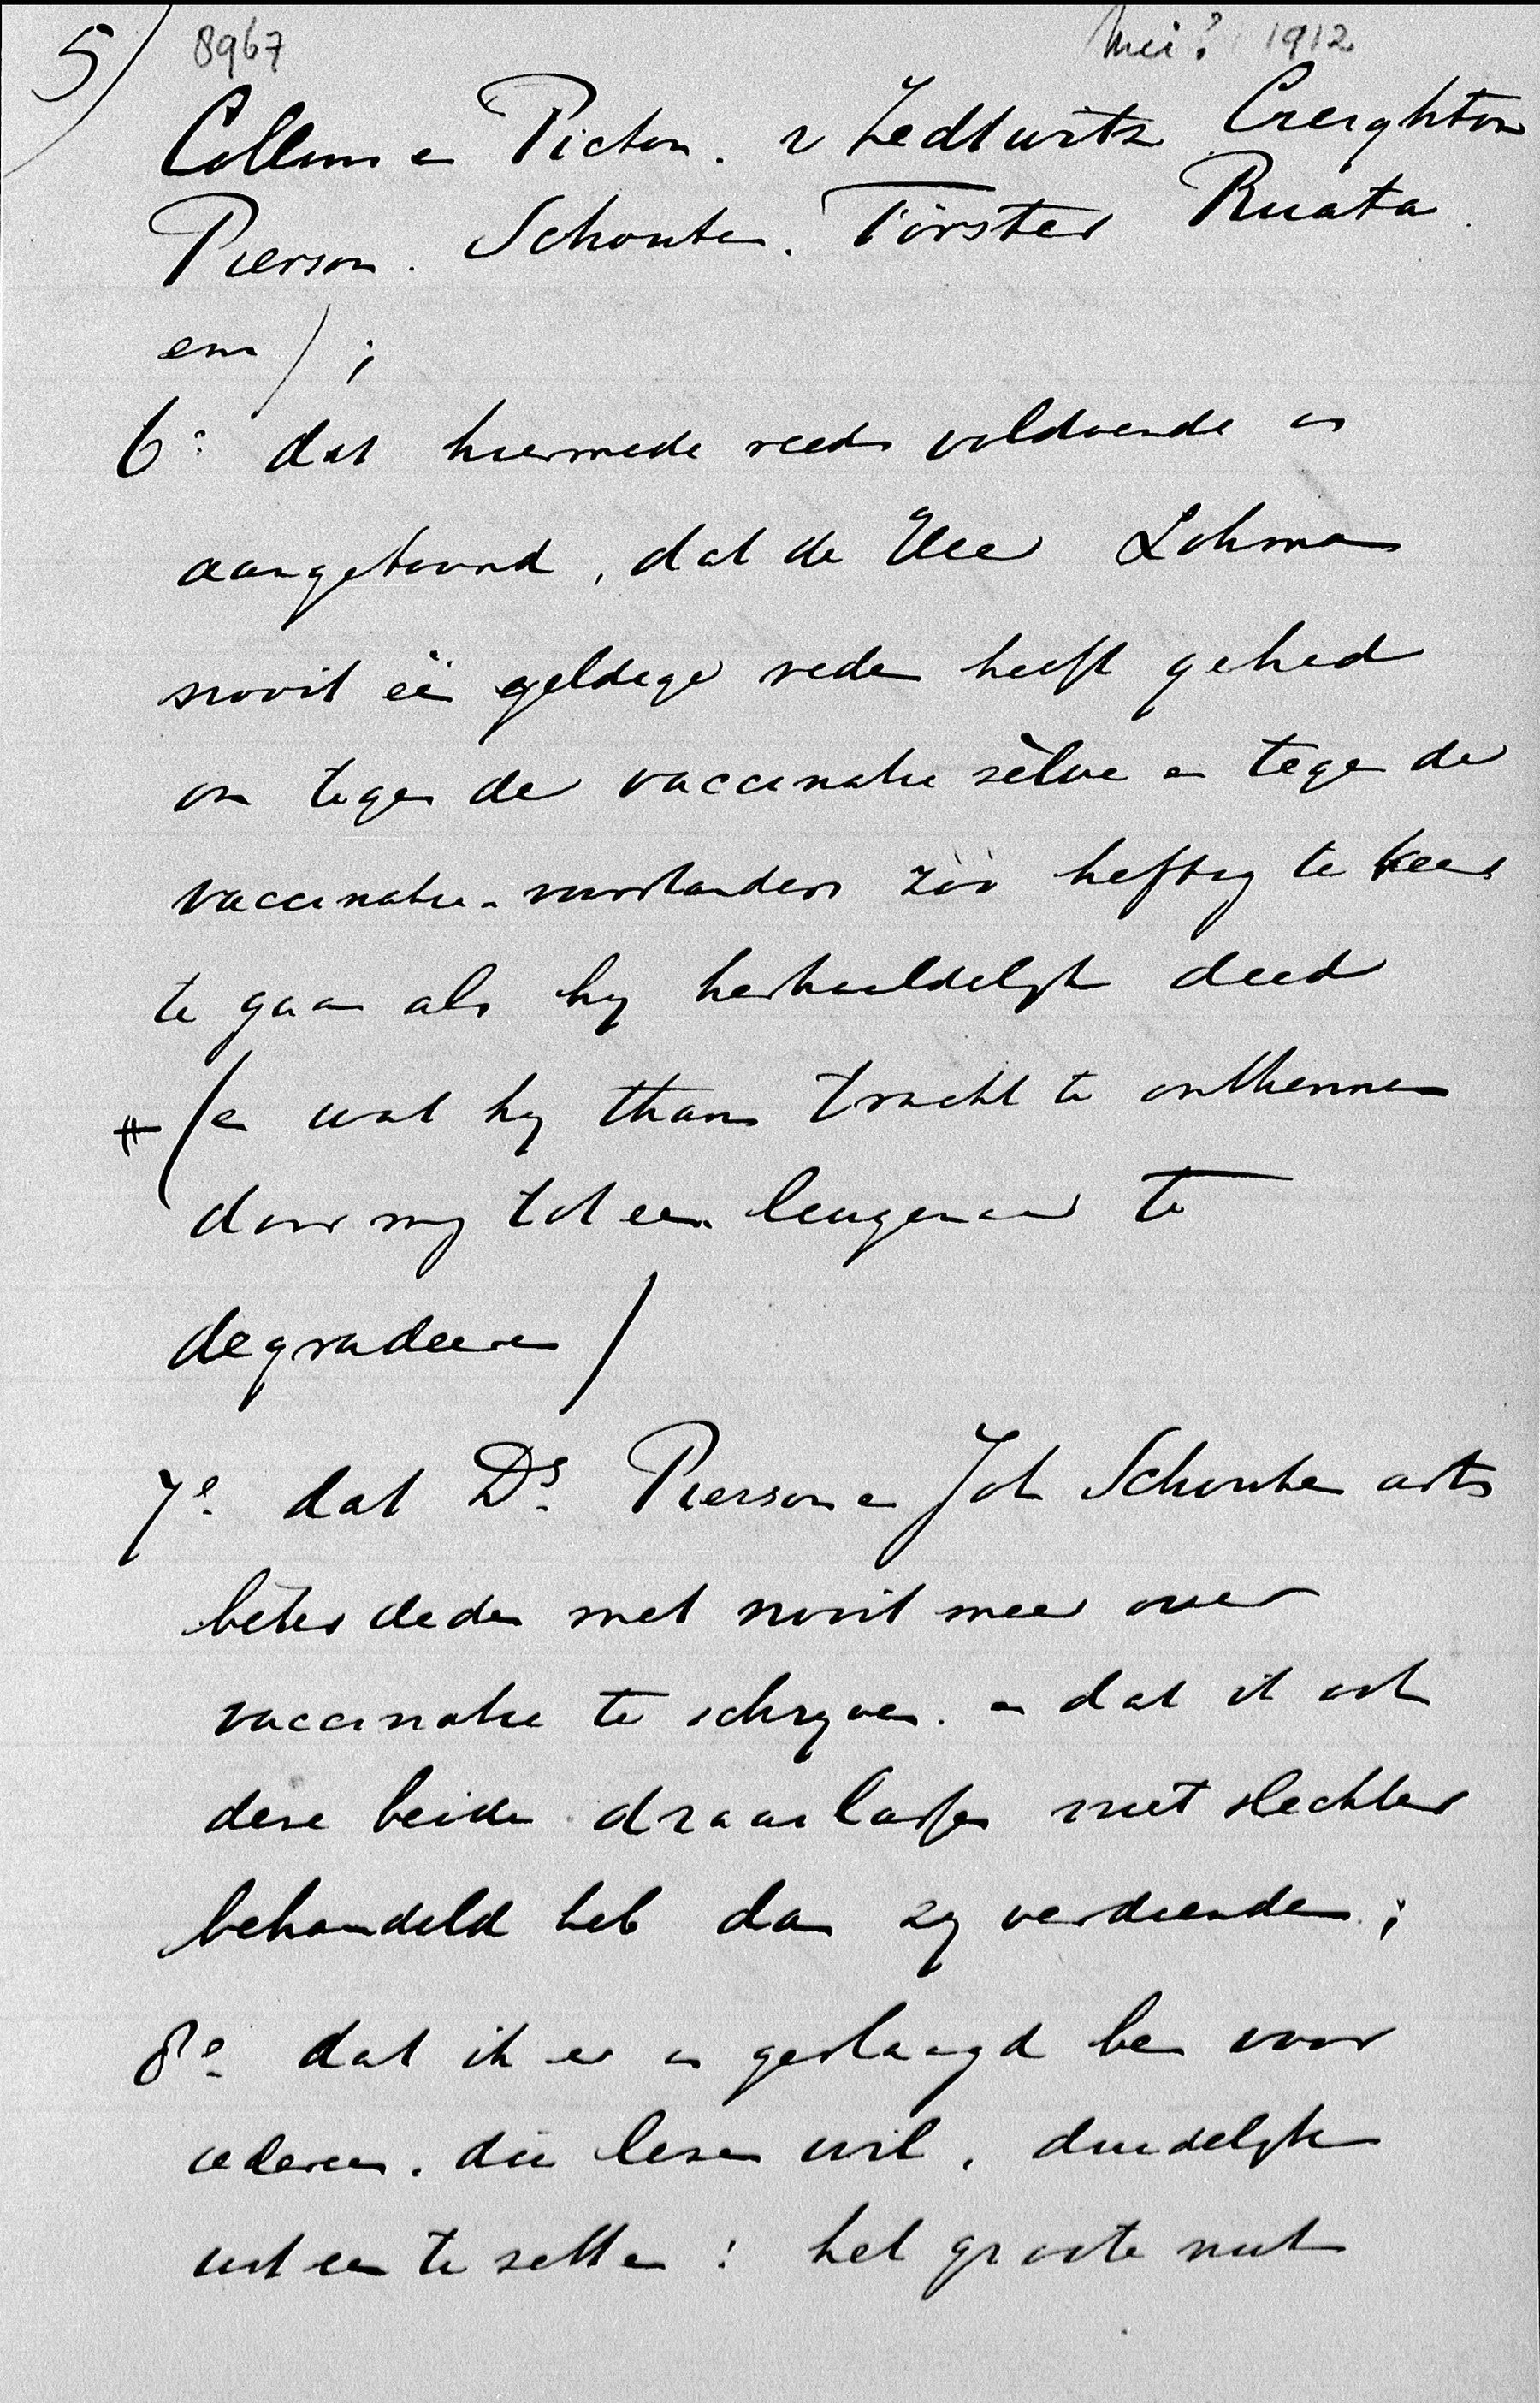 5) 8967 Mei? 1912
Collins en Picton. v Zedtwitz Creighton
Pierson. Schouten. Förster Ruata
enz);
6º dat hiermede reeds voldoende is
aangetoond, dat de Heer Lohman
nooit één geldige reden heeft gehad
om tegen de vaccinatie zèlve en tegen de
vaccinatie-voorstanders zóó heftig te keer
te gaan als hij herhaaldelijk deed
(en wat hij thans tracht te ontkennen
door mij tot een leugenaar te
degradeeren)
7e. dat Ds. Pierson en Joh Schouten arts
beter deden met nooit meer over
vaccinatie te schrijven. en dat ik ook
deze beide dwaallaassen niet slechter
behandeld heb dan zij verdienden;
8e. dat ik er in geslaagd ben voor
iedereen, die lezen wil, duidelijk
uit een te zetten: het groote nut